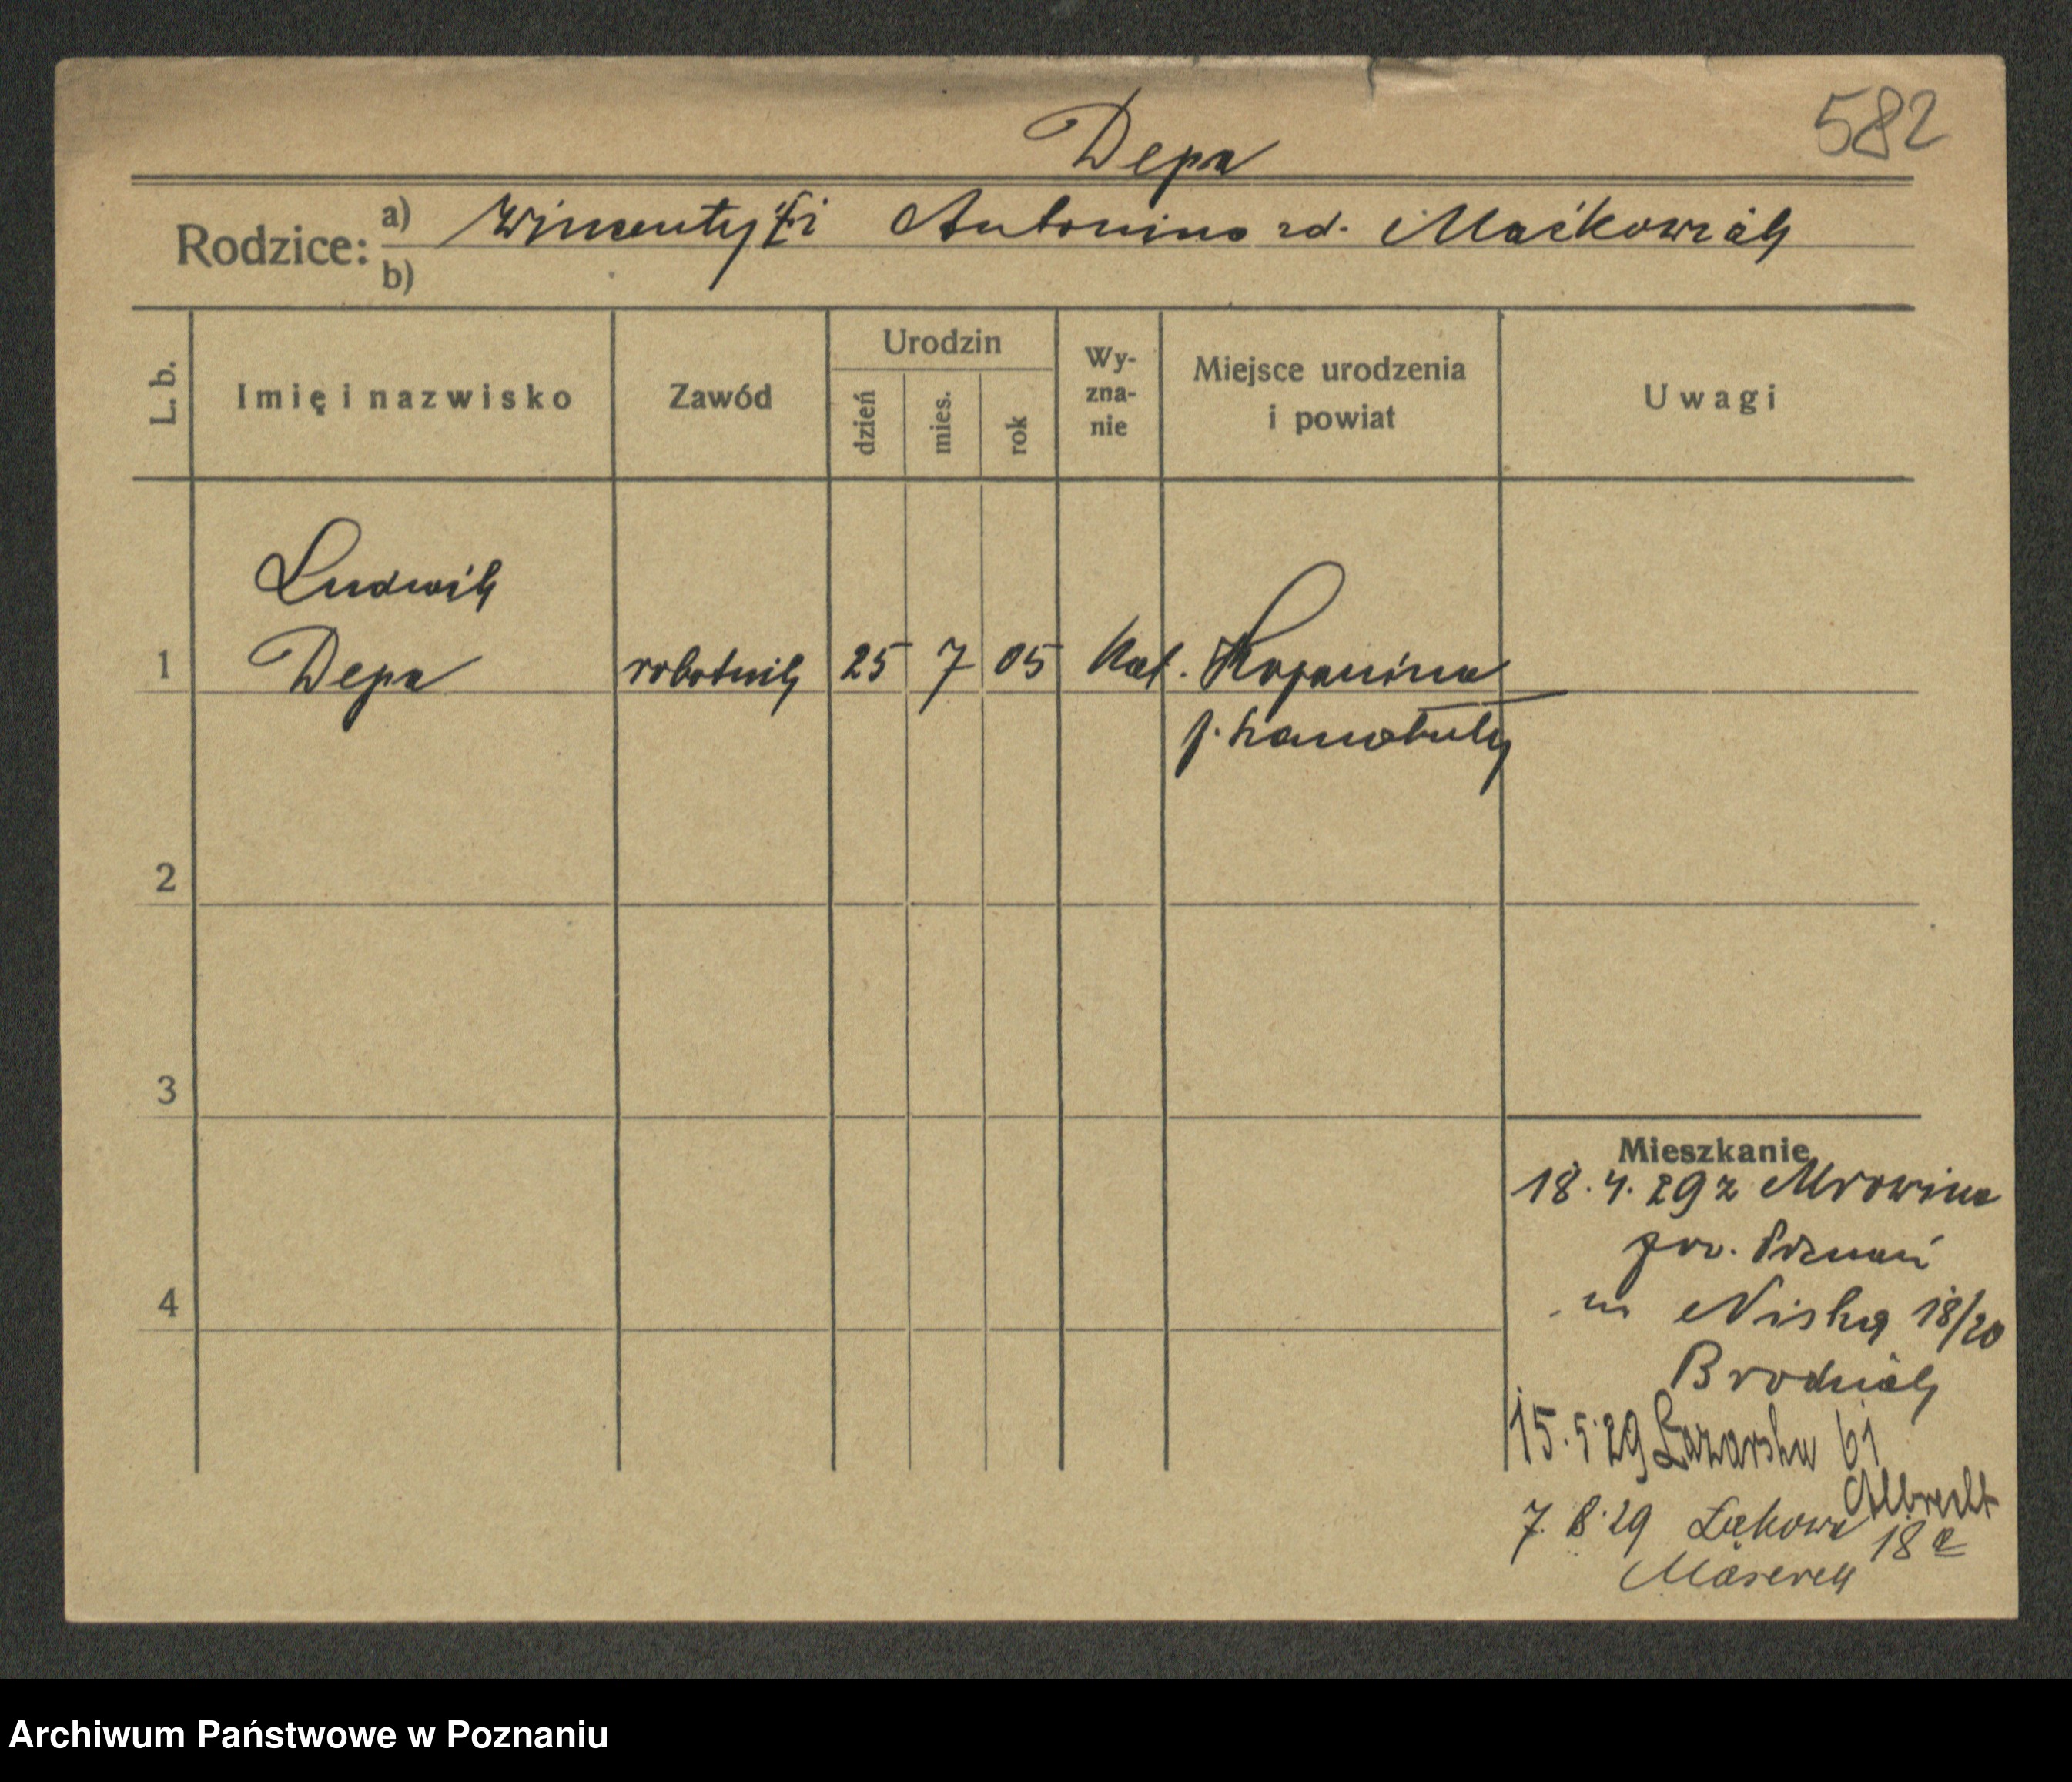 582
Depa
Rodzice: a) Wincenty † i Antonina zd. Maćkowiak
b)
L. b.
Imię i nazwisko
Zawód
Urodzin
dzień
mies.
rok
Wy-
zna-
nie
Miejsce urodzenia
i powiat
Uwagi
Ludwik
1 Depa robotnik 25 7 05 kat. Kopanina
p. Szamotuły
2
3
4
Mieszkanie
18.4.29 z Mrowina
pow. Poznań
na Niską 18/20
Brodniak
15.5.29 Łazarska 61
Albrecht
7.8.29 Łąkowa 18a